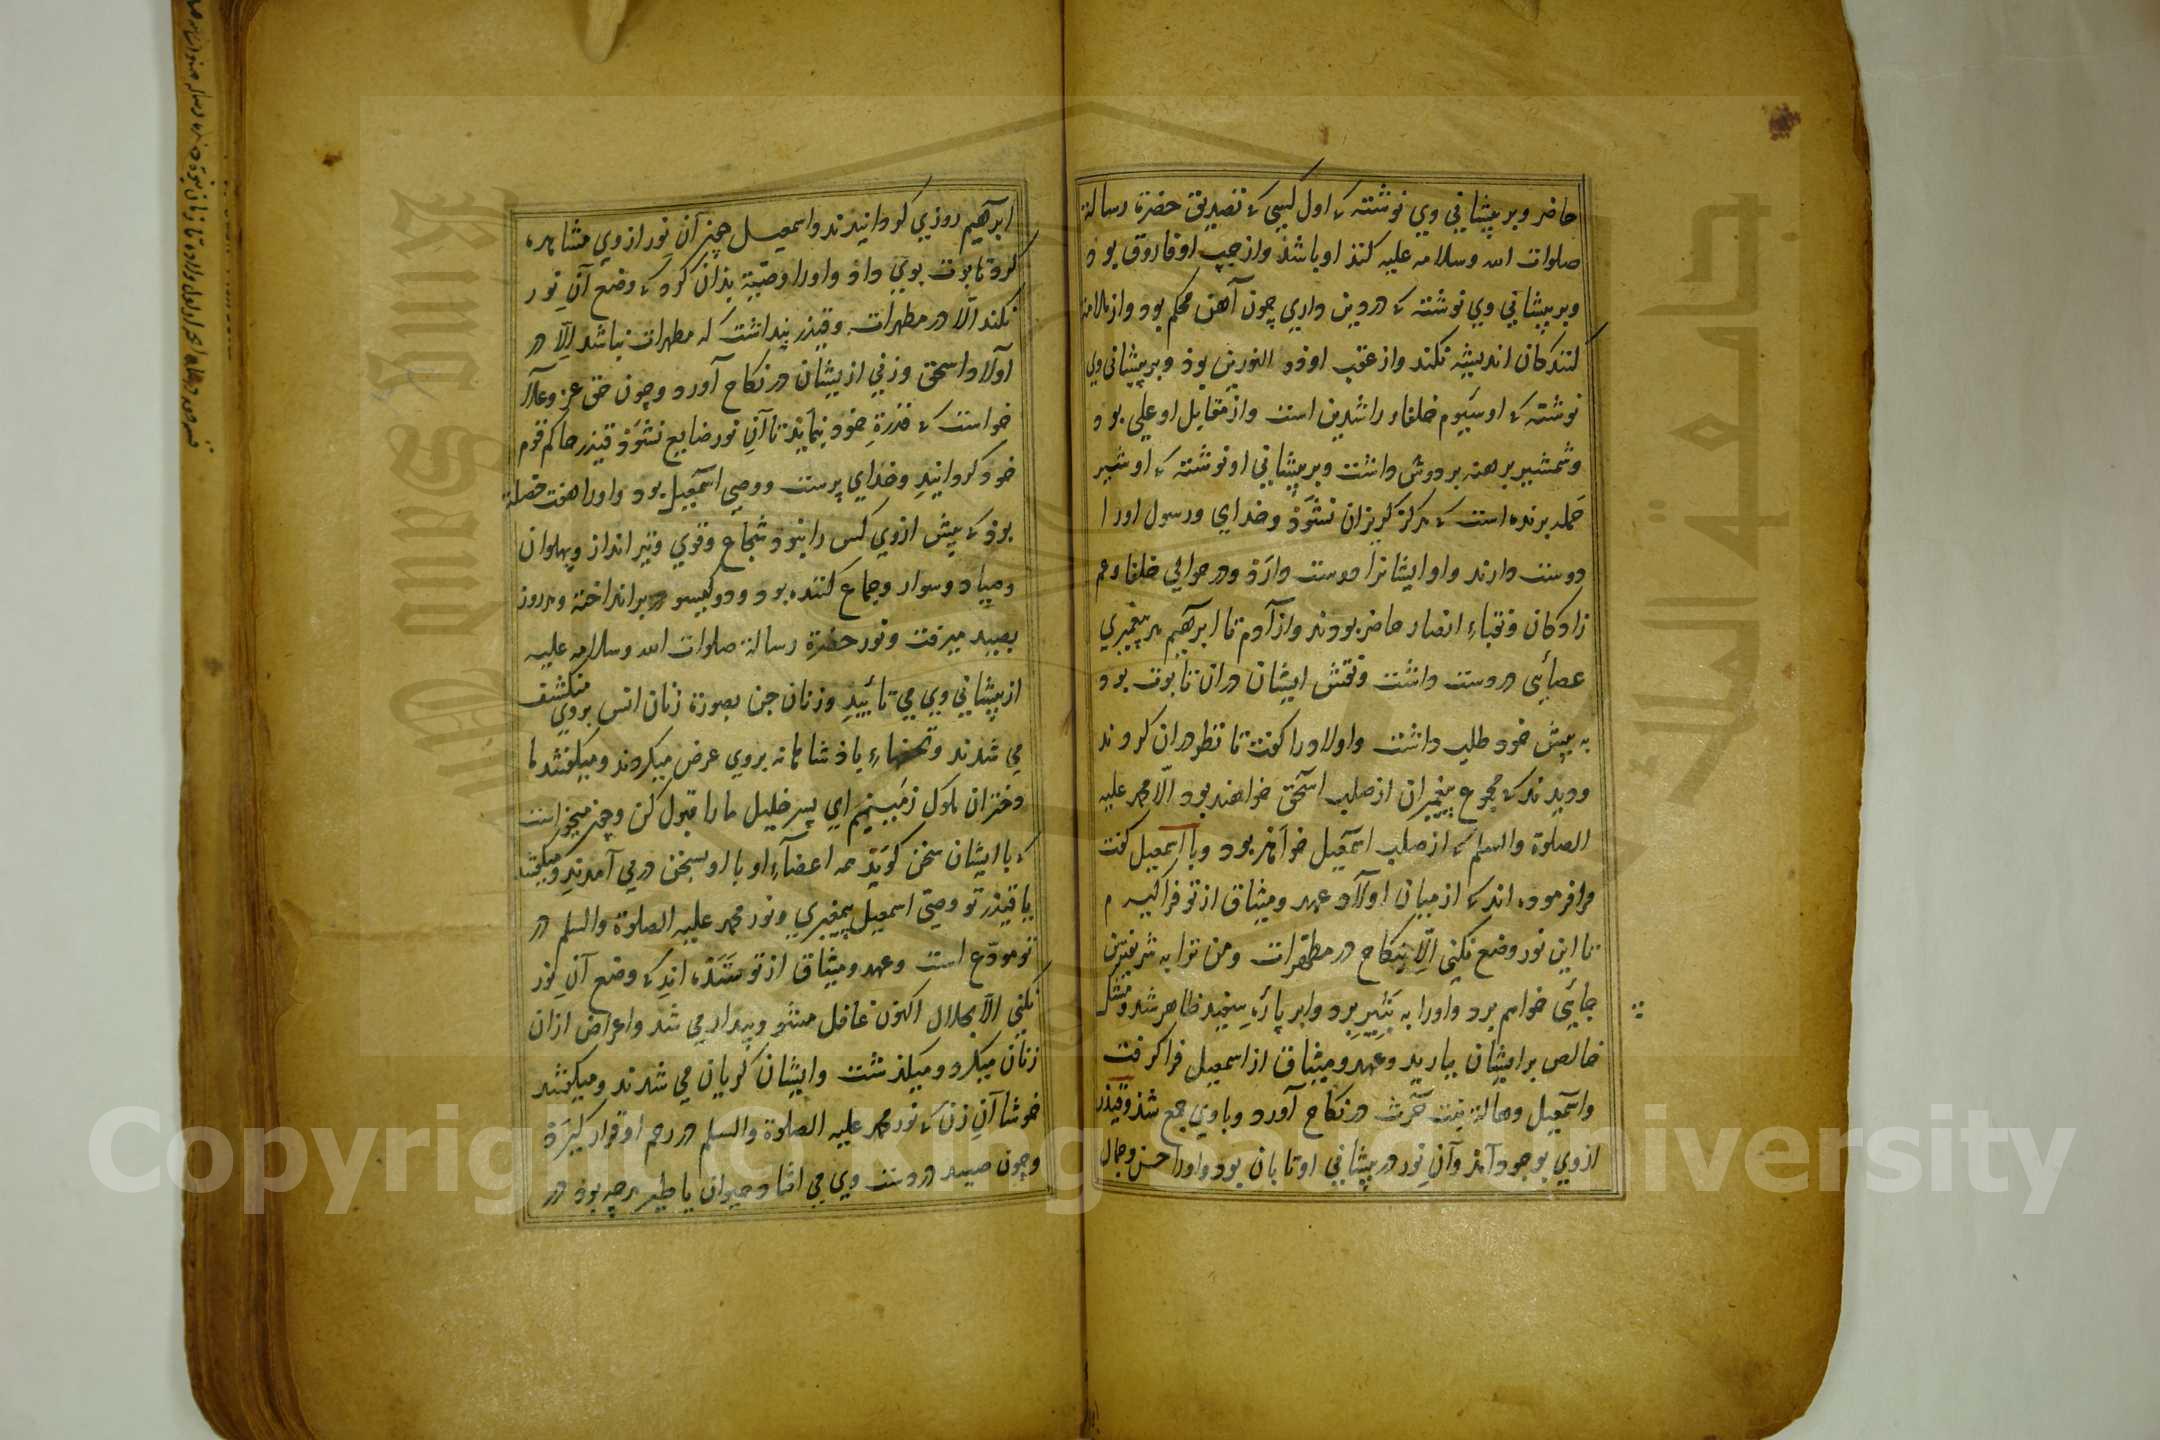 حاضر و بر پیشانی وی نوشته که اول کسی که تصدیق حضرة رسالة
صلوات الله وسلامه علیه کند او باشد و از چپ او فاروق بود
و بر پیشانی وی نوشته که در دین داری چون آهن محکم بود و از ملامة
کنندکان اندیشه نکند و از عقب او ذو النورین بوذ و بر پیشانی وی
نوشته که او سیوم خلفاء راشدین است و از مقابل او علی بود
و شمشیر برهنه بر دوش داشت و بر پیشانی او نوشته که او شیر
حمله برنده است که هرکز کریزان نشوذ و خدای و رسول او را
دوست دارند و او ایشانرا دوست دارد و در حوالی خلفا و عم
زادکان و نقباء انصار حاضر بودند و از آدم تا ابرهیم هر پیغمبری
عصائی در دست داشت و نقش ایشان دران تابوت بود
به پیش خود طلب داشت و اولاد را کفت تا نظر دران کردند
و دیدند که مجموع پیغمبران از صلب اسحق خواهند بود الا محمد علیه
الصلوة والسلم که از صلب اسمعیل خواهد بود و با اسمعیل کفت
مرا فرموده اند که از میان اولاد عهد و میثاق از تو فرا کیرم
تا این نور وضع نکنی الا بنکاح در مطهرات و من ترا به شریفترین
جایی خواهم برد و او را به ثبیر برد و ابر پاره سفید ظاهر شد و مشک
خالص بر ایشان بارید و عهد و میثاق از اسمعیل فرا کرفت
و اسمعیل وهالة بنت حرث در نکاح آورد و با وی جمع شد و قیذر
از وی بوجود آمد و آن نور در پیشانی او تابان بود و او را حسن و جمال
ابرهیم روزی کردانیدند و اسمعیل چون آن نور از وی مشاهده
کرد تابوت بوی داد و او را وصیة بذان کرد که وضع آن نور
نکند الا در مطهرات و قیذر پنداشت که مطهرات نباشد الا در
اولاد اسحق و زنی ازیشان در نکاح آورد و چون حق عز وعلا
خواست که قدرة خود بنماید تا آن نور ضایع نشود قیذر حاکم قوم
خود کردانید و خدای پرست و وصی اسمعیل بود و او را هفت خصلة
بود که پیش از وی کس را نبود شجاع و قوی و تیر انداز و پهلوان
و صیاد و سوار و جماع کننده بود و دو کیسو برانداخته و هر روز
بصید میرفت و نور حضرة رسالة صلوات الله وسلامه علیه
از پیشانی وی می تابید و زنان جن بصورة زنان انس بروی منکشف
می شدند و تحفهاء پادشاهانه بروی عرض میکردند و میکفتند ما
دختران ملوک زمینیم ای پسر خلیل ما را قبول کن و چون میخواست
که با ایشان سخن کوید همه اعضاء او با او بسخن درمی آمدند و میکفتند
یا قیذر تو وصی اسمعیل پیغمبری و نور محمد علیه الصلوة والسلم در
تو مودع است و عهد و میثاق از تو ستده اند که وضع آن نور
نکنی الا بحلال اکنون غافل مشو و بیدار می شد و اعراض ازان
زنان میکرد و میکذشت و ایشان کریان می شدند و میکفتند
خوشا آن زن که نور محمد علیه الصلوة والسلم در رحم او قرار کیرد
و چون صید در دست وی می افتاد حیوان یا طیر هرچه بود در